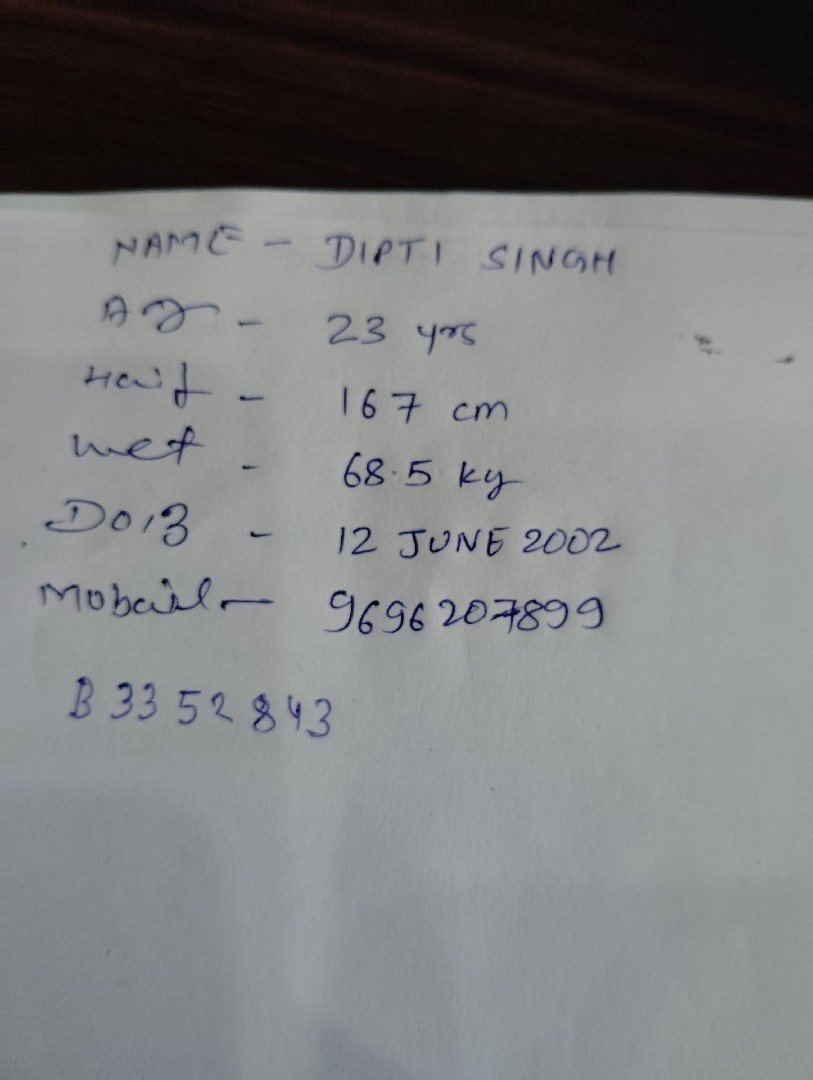 NAME - DIPTI SINGH
Age - 23 yrs
Haif - 167 cm
wet - 68.5 kg
DOB - 12 JUNE 2002
Mobail - 9696207899
B3352843